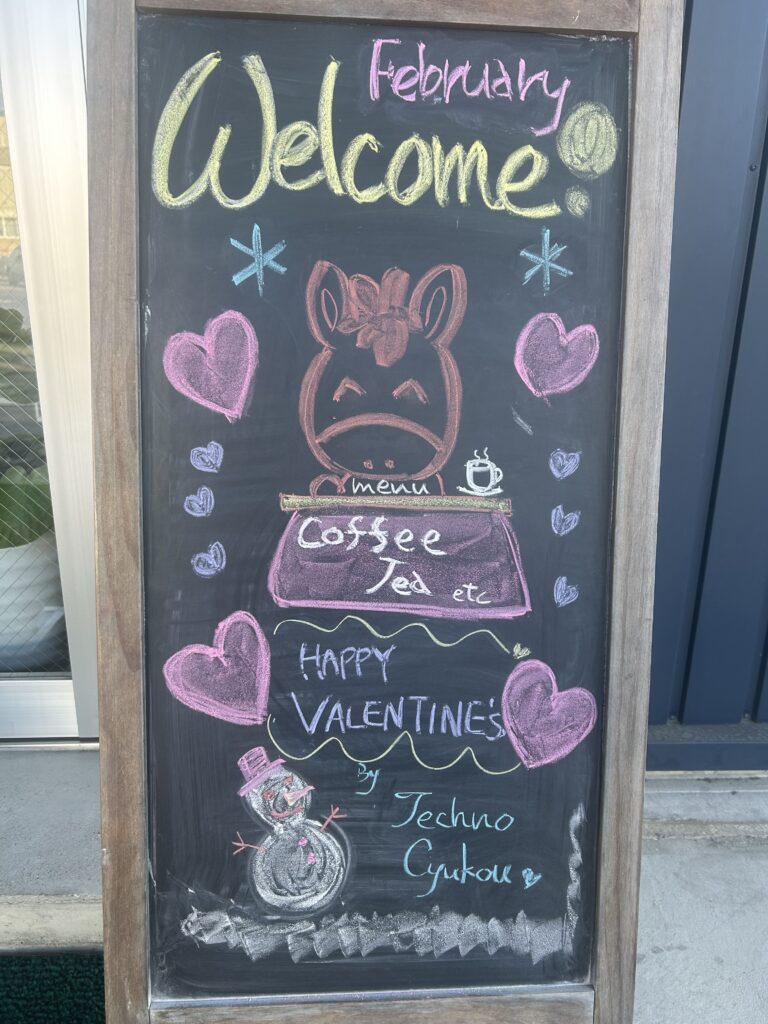 February
Welcome!
menu
Coffee
Tea etc
HAPPY
VALENTINE'S
By
Techno
Cyukou